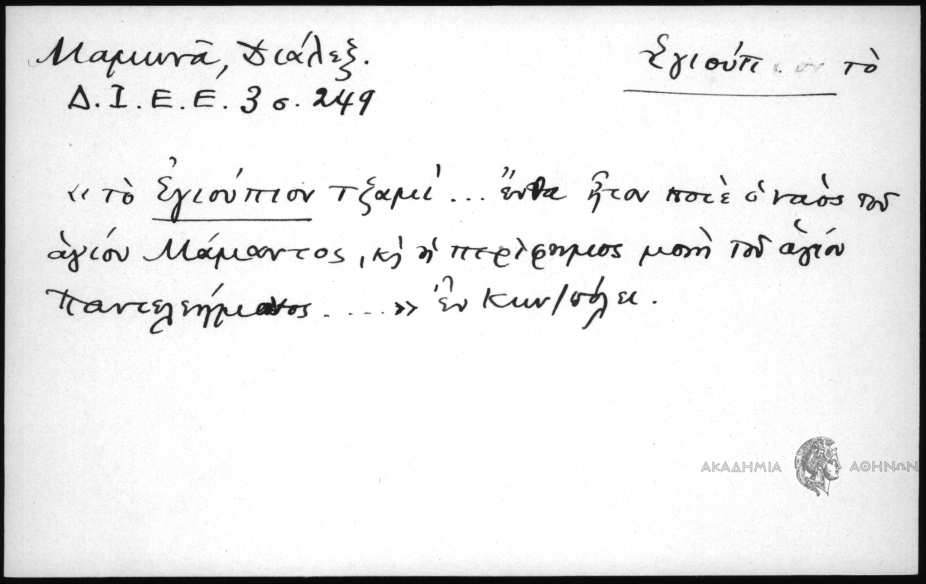 Μαμωνᾶ, Διάλεξ.
Ἐγιούπιον τὸ
Δ.Ι.Ε.Ε. 3 σ. 249
«τὸ Ἐγιούπιον τζαμί ... ἔνθα ἦτον ποτὲ ὁ ναὸς τοῦ
ἁγίου Μάμαντος, κὴ ἡ περίφημος μονὴ τοῦ ἁγίου
Παντελεήμονος ....» ἐν Κων/πόλει.
ΑΚΑΔΗΜΙΑ ΑΘΗΝΩΝ